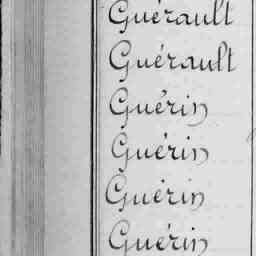 Guérault
Guérault
Guérin
Guérin
Guérin
Guérin